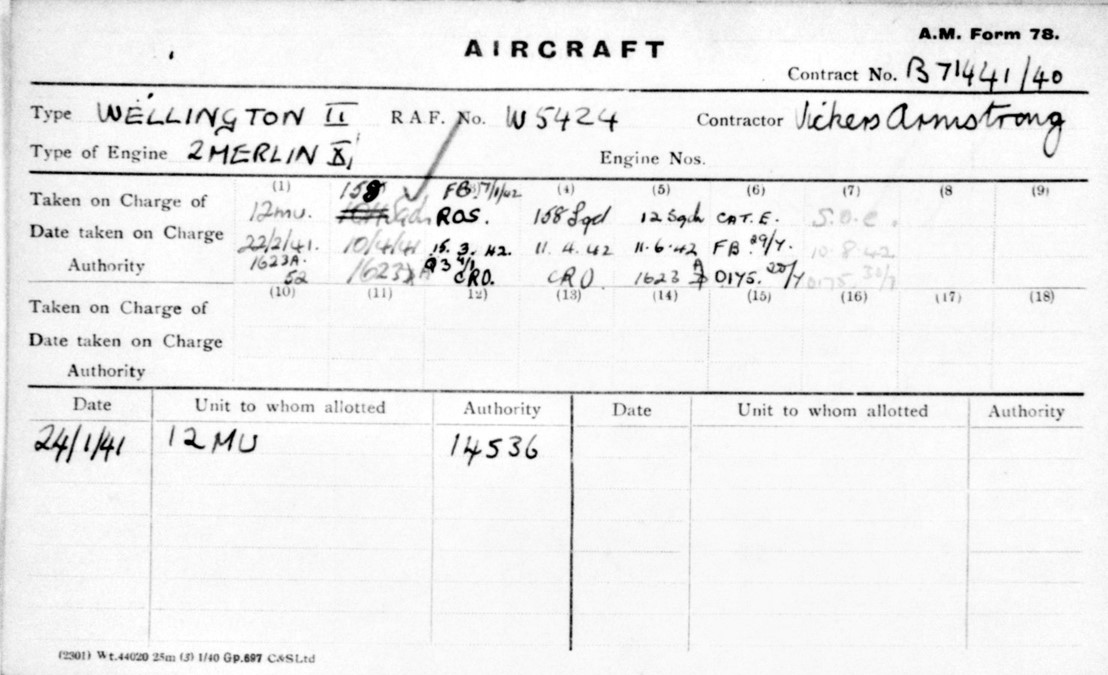 A.M. Form 78.
AIRCRAFT
Contract No. B71441/40
Type WELLINGTON II R A F. No. W5424 Contractor Vickers Armstrong
Type of Engine 2 MERLIN X Engine Nos.
(1) 158 FB (4) (5) (6) (7) (8 (9)
Taken on Charge of 12MU. 104 Sqdn ROS. 158 Sqd 12 Sqdn CAT. E. S.O.C.
Date taken on Charge 22/2/41. 10/4/41 15. 3. 42. 11. 4. 42 11. 6. 42 FB 29/7. 10. 8. 42
Authority 1623A. 52 1623 A CRO. CRO 1623 0175. 0175.
(10) (11) 12) (13) (14) (15) (16) (17) (18)
Taken on Charge of
Date taken on Charge
Authority
Date Unit to whom allotted Authority Date Unit to whom allotted Authority
24/1/41 12 MU 14536
(2301) Wt.44020 25m (3) 1/40 Gp.697 C&SLtd